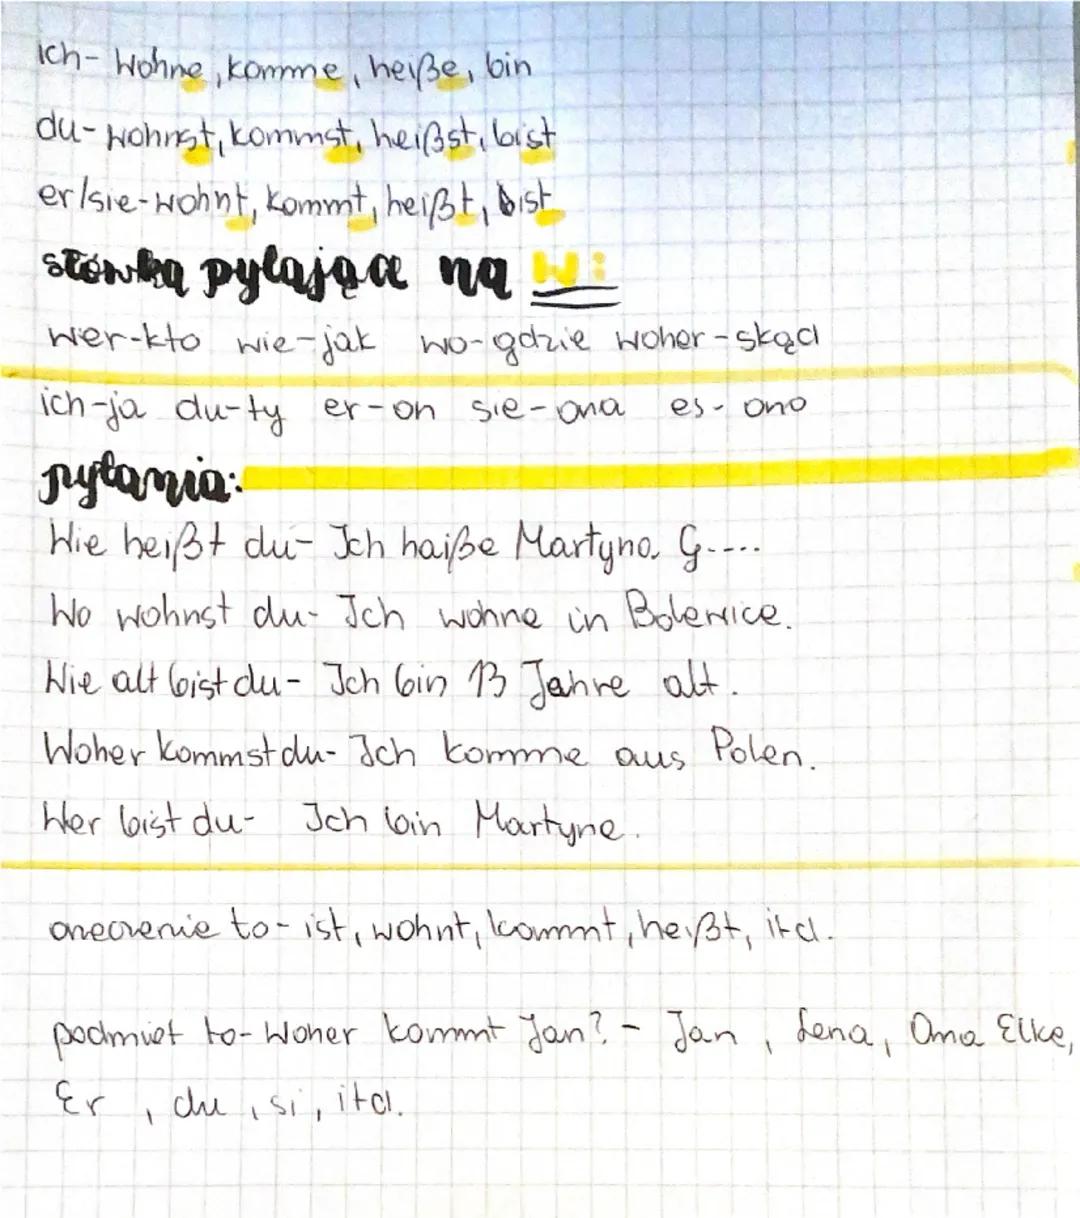 ich- wohne, komme, heiße, bin
du- wohnst, kommst, heißst, bist
er/sie-wohnt, kommt, heißt, bist
słówka pytające na W:
wer-kto wie-jak wo-gdzie woher-skąd
ich-ja du-ty er-on sie-ona es- ono
pytania:
Wie heißt du- Ich haiße Martyna G....
Wo wohnst du- Ich wohne in Bolewice.
Wie alt bist du- Ich bin 13 Jahre alt.
Woher kommst du- Ich komme aus Polen.
Wer bist du- Ich bin Martyne.
to- ist, wohnt, kommt, heißt, itd.
podmiot to- Woher kommt Jan? - Jan, Lena, Oma Elke,
Er, du, si, itd.